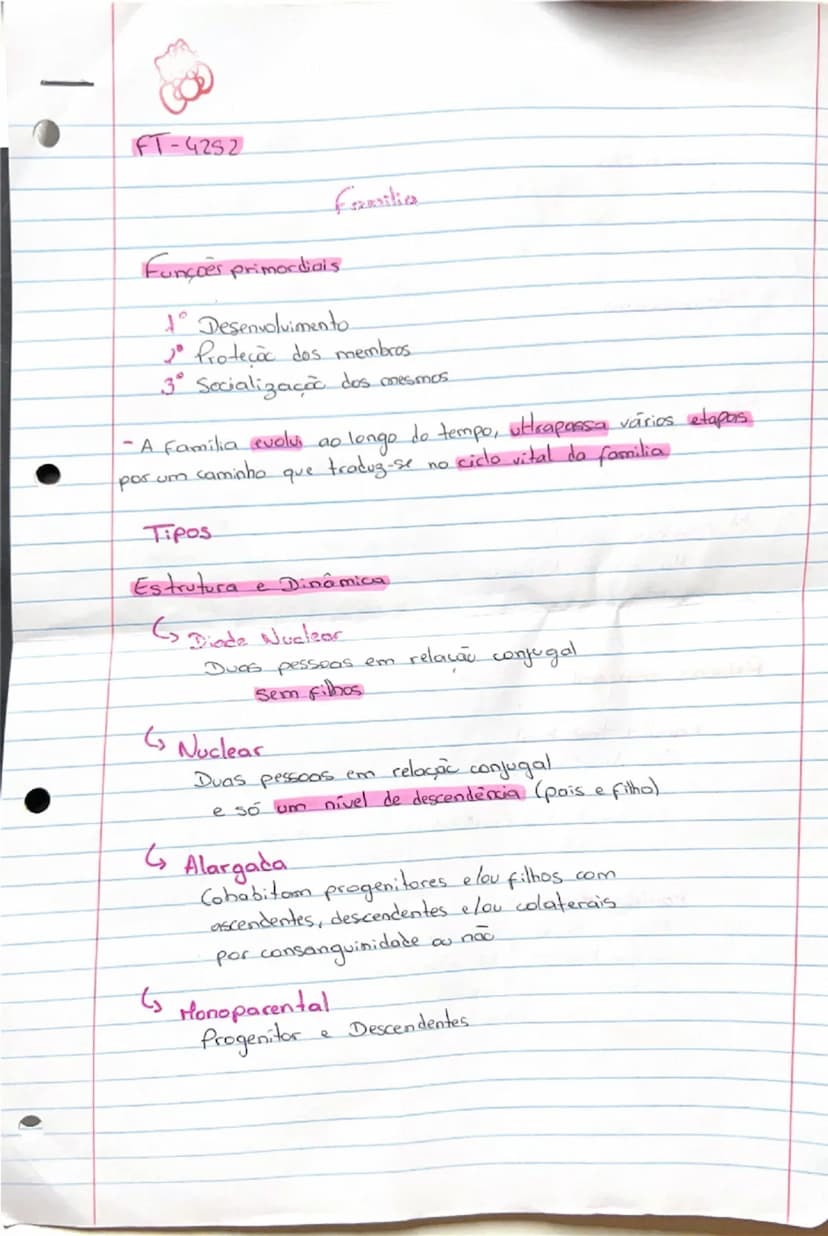 FT-4252
Família
Funções primordiais
1º Desenvolvimento
2º Proteção dos membros
3º Socialização dos mesmos
- A Família evolui ao longo do tempo, ultrapassa vários etapas
por um caminho que traduz-se no ciclo vital da família
Tipos
Estrutura e Dinâmica
↳ Díade Nuclear
Duas pessoas em relação conjugal
sem filhos
↳ Nuclear
Duas pessoas em relação conjugal
e só um nível de descendência (pais e filho)
↳ Alargada
Cohabitam progenitores e/ou filhos com
ascendentes, descendentes e/ou colaterais
por consanguinidade ou não
↳ Monoparental
Progenitor e Descendentes